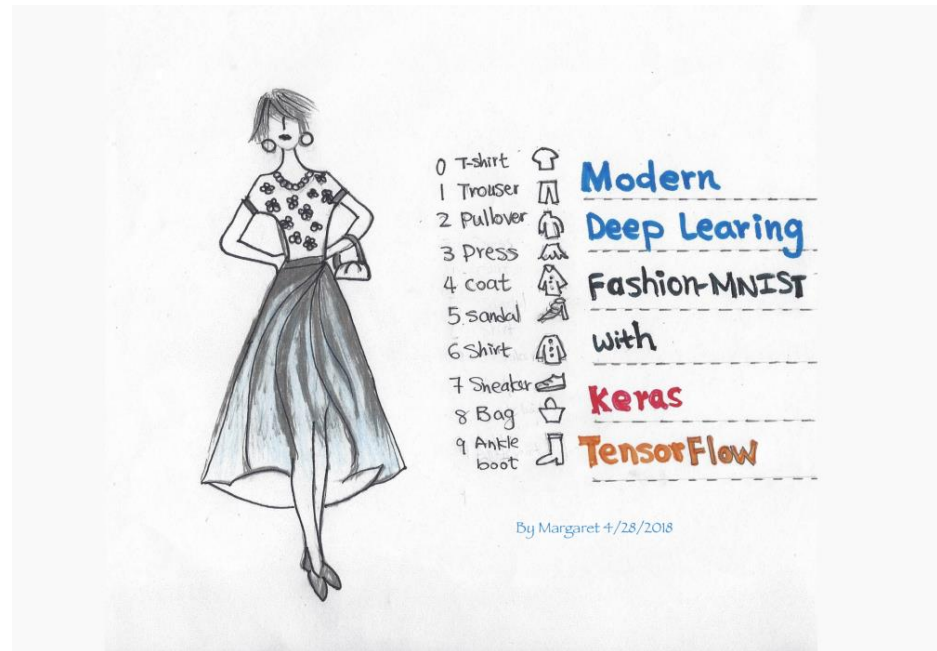 0 T-shirt
1 Trouser
2 Pullover
3 Press
4 coat
5 Sandal
6 Shirt
7 Sneaker
8 Bag
9 Ankle
boot
Modern
Deep Learing
Fashion-MNIST
with
Keras
TensorFlow
By Margaret 4/28/2018